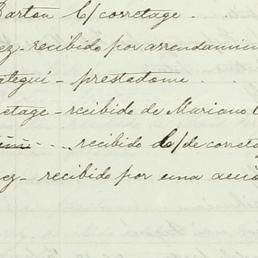 Barton C/corretage.
ez - recibido por arrendamien
ategui - prestadome
retage - recibido de Mariano
recibido C/de corretag
ez - recibido por una acció